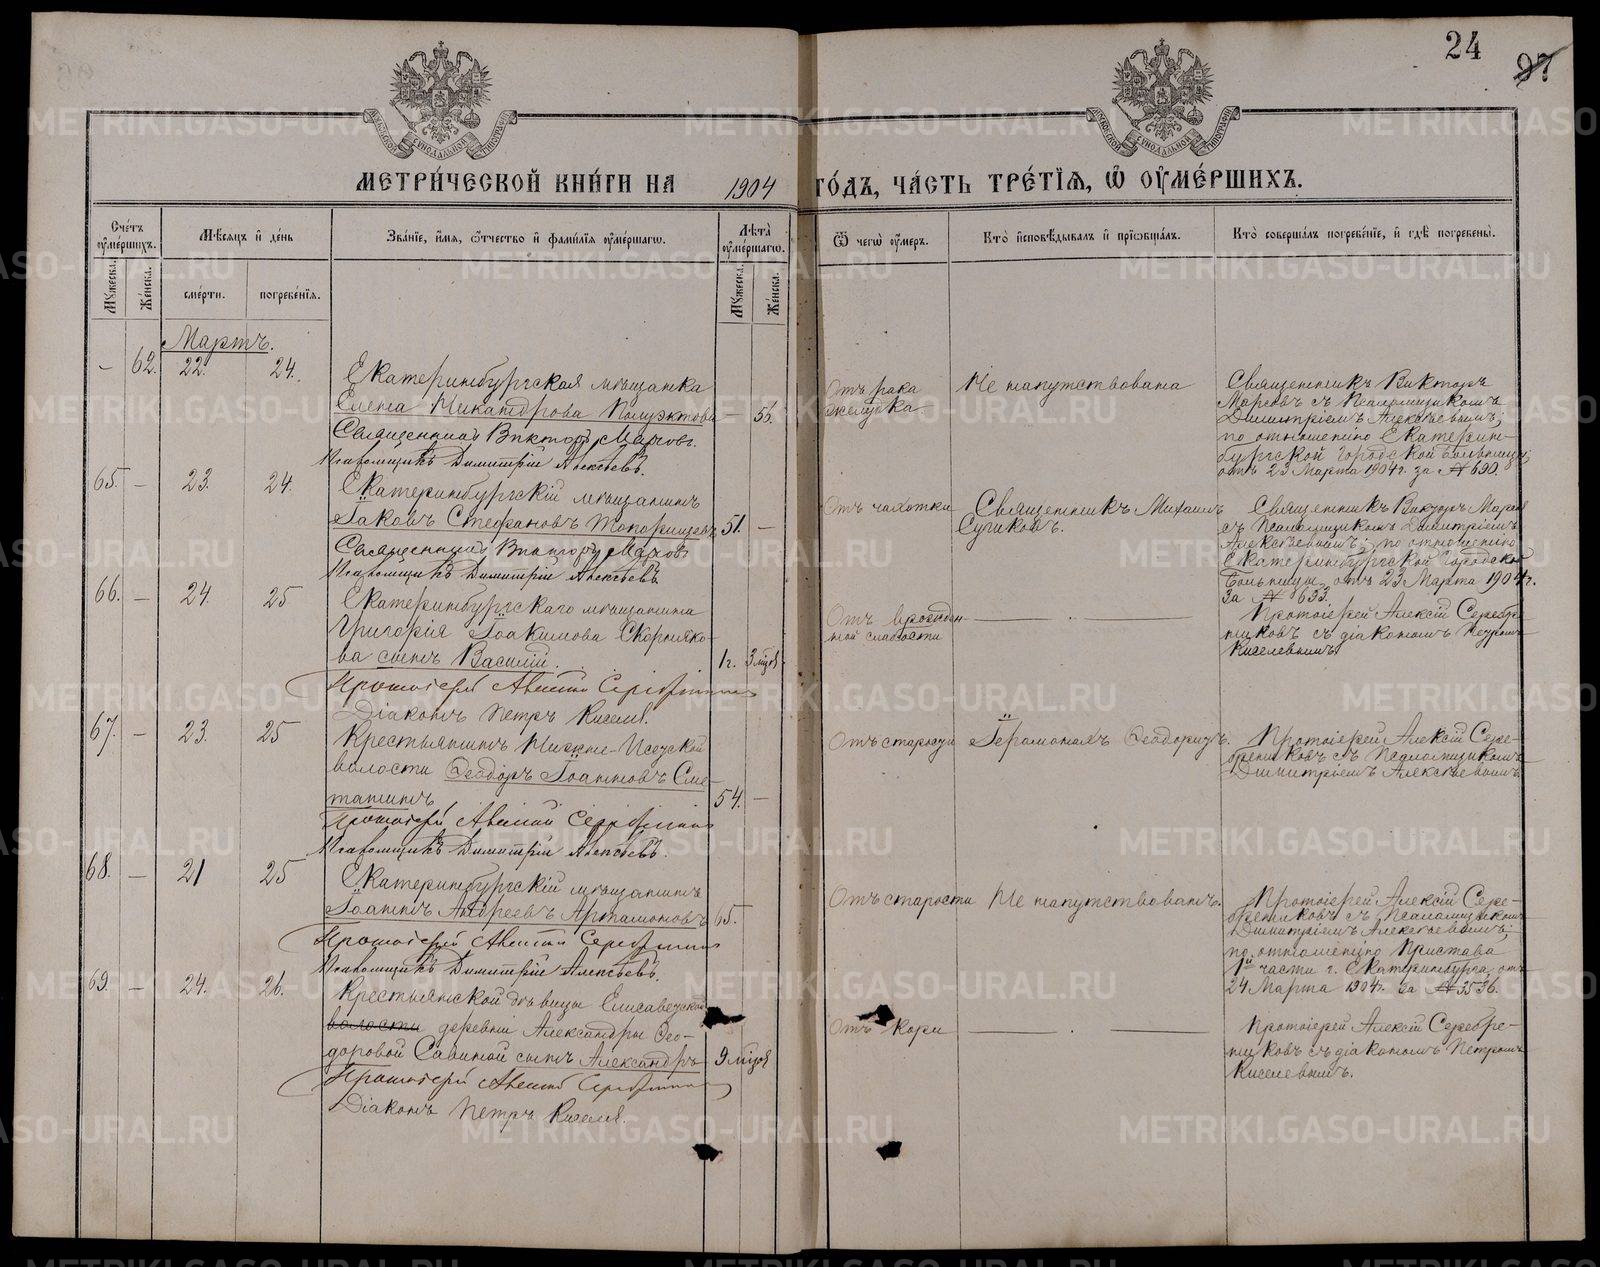 24
97
МЕТРИ́ЧЕСКОЙ КНИ́ГИ НА 1904 ГО́ДЪ, ЧА́СТЬ ТРЕ́ТІѦ, Ѽ ОУ҆МЕ́РШИХЪ.
Сче́тъ оу҆ме́ршихъ.
Мѣ́сѧцъ и҆ де́нь
Зва́нїе, и҆́мѧ, ѻ҆́тчество и҆ фами́лїѧ оу҆ме́ршагѡ.
Лѣ́та оу҆ме́ршагѡ.
Ѿ чегѡ̀ оу҆́меръ.
Кто̀ и҆сповѣ́дывалъ и҆ прїѡбща́лъ.
Кто̀ соверша́лъ погребе́нїе, и҆ гдѣ̀ погребены̀.
Мꙋ́жеска.
Же́нска.
сме́рти.
погребе́нїѧ.
Мꙋ́жеска.
Же́нска.
Мартъ.
– 62. 22. 24.
Екатеринбургская мѣщанка
Елена Никандрова Полуэктова – 56.
Священникъ Викторъ Маровъ.
Псаломщикъ Димитрій Алексѣевъ.
Отъ рака
желудка
Не напутствована
Священникъ Викторъ
Маровъ съ Псаломщикомъ
Димитріемъ Алексѣевымъ;
по отношенію Екатерин-
бургской Городской Больницы
отъ 23 Марта 1904 г. за № 690.
65. – 23. 24.
Екатеринбургскій мѣщанинъ
Іаковъ Стефановъ 51. –
Священникъ Викторъ Маровъ
Псаломщикъ Димитрій Алексѣевъ
Отъ чахотки
Священникъ Михаилъ
Сушковъ.
Священникъ Викторъ Маровъ
съ Псаломщикомъ Димитріемъ
Алексѣевымъ; по отношенію
Екатеринбургской Городской
Больницы отъ 23 Марта 1904 г.
за № 693.
66. – 24. 25
Екатеринбургскаго мѣщанина
Григорія Іоакимова Скорняко-
ва сынъ Василій. 1 г. 3 мцѣв
Протоіерей Алексій Серебренниковъ
Діаконъ Петръ Киселев.
Отъ врожден-
ной слабости
Протоіерей Алексій Серебре-
никовъ съ діакономъ Петромъ
Киселевымъ
67. – 23. 25
Крестьянинъ Нижне-Исетской
волости Ѳеодоръ Іоанновъ Сме-
танинъ 54. –
Протоіерей Алексій Серебренниковъ
Псаломщикъ Димитрій Алексѣевъ.
Отъ старости
Іеромонахъ Ѳеодоритъ.
Протоіерей Алексій Сере-
бренниковъ съ Псаломщикомъ
Димитріемъ Алексѣевымъ
68. – 21 25
Екатеринбургскій мѣщанинъ
Іоаннъ Андреевъ Артамоновъ 65.
Протоіерей Алексій Серебренниковъ
Псаломщикъ Димитрій Алексѣевъ.
Отъ старости
Не напутствованъ.
Протоіерей Алексій Сере-
бренниковъ съ Псаломщикомъ
Димитріемъ Алексѣевымъ;
по отношенію Пристава
1й части г. Екатеринбурга, отъ
24 Марта 1904 г. за № 3536.
69. – 24. 26.
Крестьянской дѣвицы Елисаветской
волости деревни Александры Ѳео-
доровой Савиной сынъ Александръ 9 мцѣв
Протоіерей Алексій Серебренниковъ
Діаконъ Петръ Киселев.
Отъ кори
Протоіерей Алексій Серебре-
никовъ съ діакономъ Петромъ
Киселевымъ.
METRIKI.GASO-URAL.RU